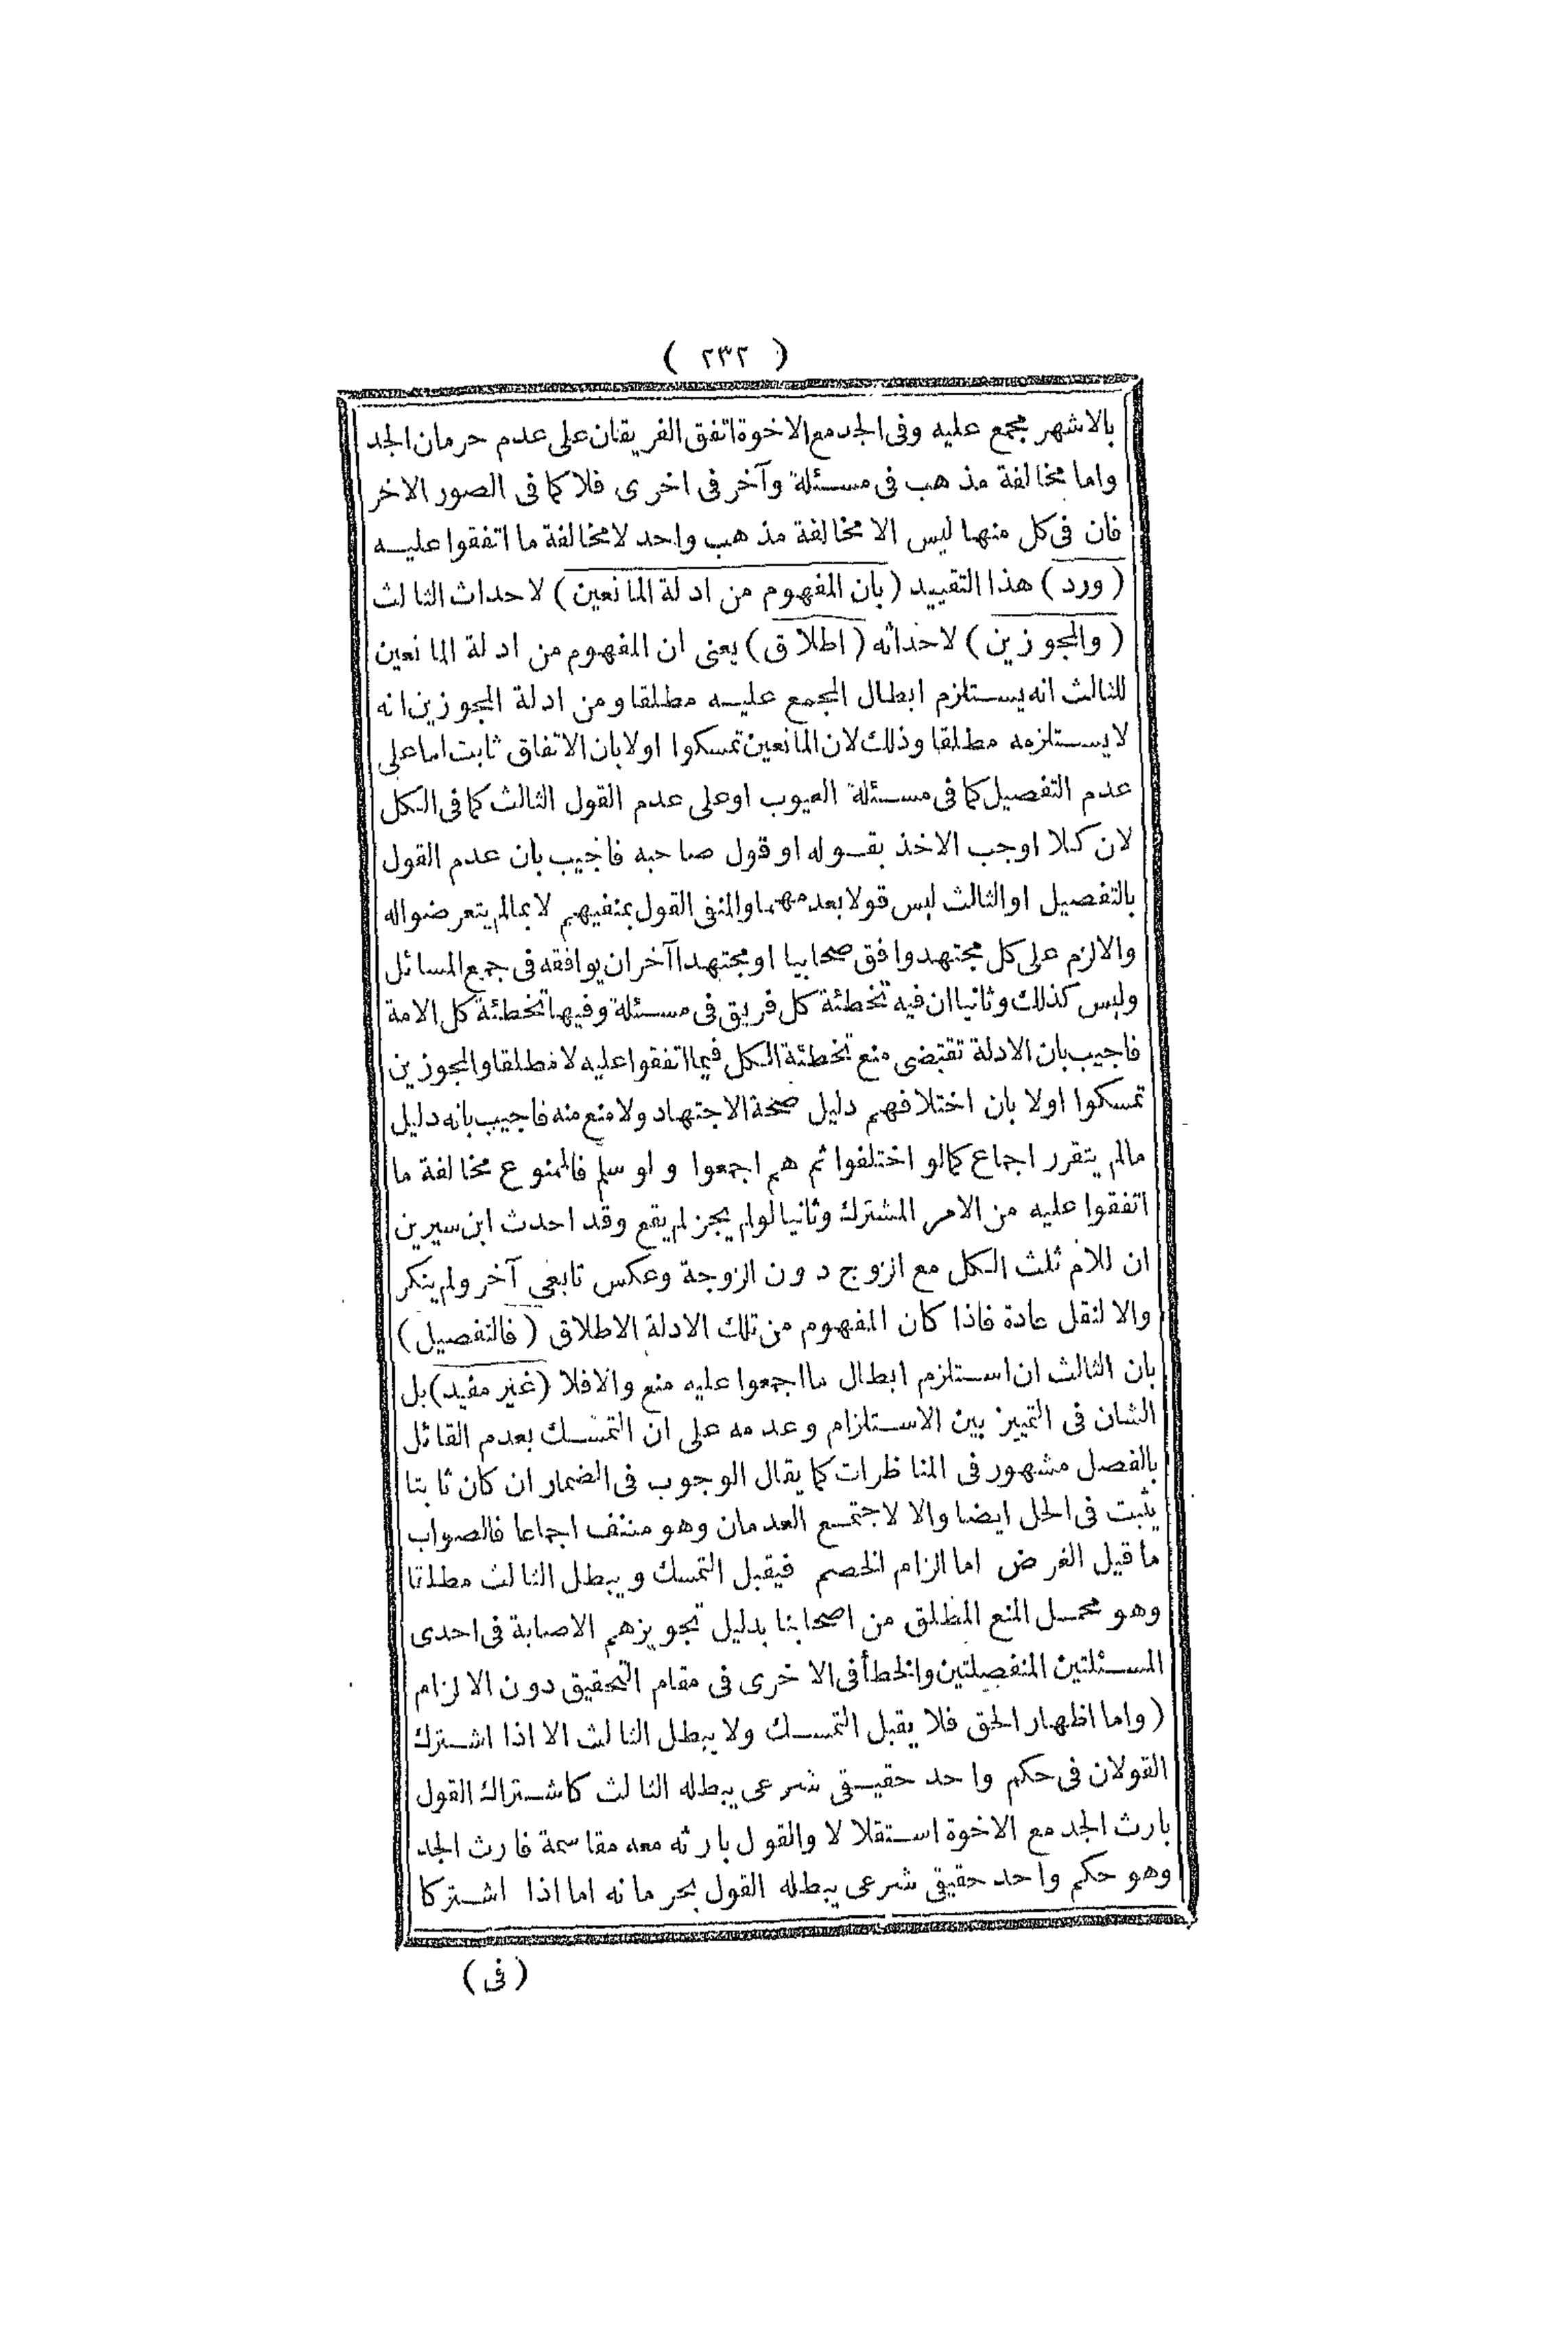 ( ٢٣٢ )
بالاشهر مجمع عليه وفى الجد مع الاخوة اتفق الفريقان على عدم حرمان الجد
واما مخالفة مذهب فى مسئلة وآخر فى اخرى فلا كما فى الصور الاخر
فان فى كل منها ليس الا مخالفة مذهب واحد لا مخالفة ما اتفقوا عليه
( ورد ) هذا التقييد ( بان المفهوم من ادلة المانعين ) لاحداث الثالث
( والمجوزين ) لاحداثه ( اطلاق ) يعنى ان المفهوم من ادلة المانعين
للثالث انه يستلزم ابطال المجمع عليه مطلقا ومن ادلة المجوزين انه
لا يستلزمه مطلقا وذلك لان المانعين تمسكوا اولا بان الاتفاق ثابت اما على
عدم التفصيل كما فى مسئلة العيوب او على عدم القول الثالث كما فى الكل
لان كلا اوجب الاخذ بقوله او قول صاحبه فاجيب بان عدم القول
بالتفصيل او الثالث ليس قولا بعدمهما والمنفى القول بمنفيهم لا بما لم يتعرضوا له
والا لزم على كل مجتهد وافق صحابيا او مجتهدا آخر ان يوافقه فى جميع المسائل
وليس كذلك وثانيا ان فيه تخطئة كل فريق فى مسئلة وفيها تخطئة كل الامة
فاجيب بان الادلة تقتضى منع تخطئة الكل فيما اتفقوا عليه لا مطلقا والمجوزين
تمسكوا اولا بان اختلافهم دليل صحة الاجتهاد ولا منع منه فاجيب بانه دليل
مالم يتقرر اجماع كما لو اختلفوا ثم هم اجمعوا ولو سلم فالممنوع مخالفة ما
اتفقوا عليه من الامر المشترك وثانيا لو لم يجز لم يقع وقد احدث ابن سيرين
ان للام ثلث الكل مع الزوج دون الزوجة وعكس تابعى آخر ولم ينكر
والا لنقل عادة فاذا كان المفهوم من تلك الادلة الاطلاق ( فالتفصيل )
بان الثالث ان استلزم ابطال ما اجمعوا عليه منع والا فلا ( غير مفيد ) بل
الشان فى التمييز بين الاستلزام وعدمه على ان التمسك بعدم القائل
بالفصل مشهور فى المناظرات كما يقال الوجوب فى الضمار ان كان ثابتا
يثبت فى الحل ايضا والا لاجتمع العدمان وهو منتف اجماعا فالصواب
ما قيل الغرض اما الزام الخصم فيقبل التمسك ويبطل الثالث مطلقا
وهو محمل المنع المطلق من اصحابنا بدليل تجويزهم الاصابة فى احدى
المسئلتين المنفصلتين والخطأ فى الاخرى فى مقام التحقيق دون الالزام
( واما اظهار الحق فلا يقبل التمسك ولا يبطل الثالث الا اذا اشترك
القولان فى حكم واحد حقيقى شرعى يبطله الثالث كاشتراك القول
بارث الجد مع الاخوة استقلالا والقول بارثه معه مقاسمة فارث الجد
وهو حكم واحد حقيقى شرعى يبطله القول بحرمانه اما اذا اشتركا
( فى )